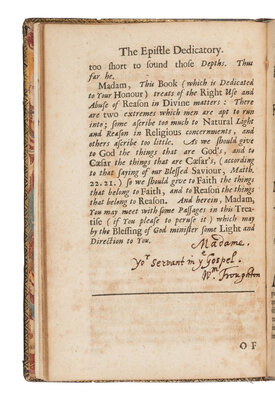 The Epistle Dedicatory.
too short to sound those Depths. Thus
far he.
Madam, This Book (which is Dedicated
to Your Honour) treats of the Right Use and
Abuse of Reason in Divine matters: There
are two extremes which men are apt to run
into; some ascribe too much to Natural Light
and Reason in Religious concernments, and
others ascribe too little. As we should give
to God the things that are God's, and to
Cæsar the things that are Cæsar's, (according
to that saying of our Blessed Saviour, Matth.
22.21.) so we should give to Faith the things
that belong to Faith, and to Reason the things
that belong to Reason. And herein, Madam,
You may meet with some Passages in this Trea-
tise (if You please to peruse it) which may
by the Blessing of God minister some Light and
Direction to You.
Madame.
Yor Servant in ye Gospel.
Wm Troughton
O F